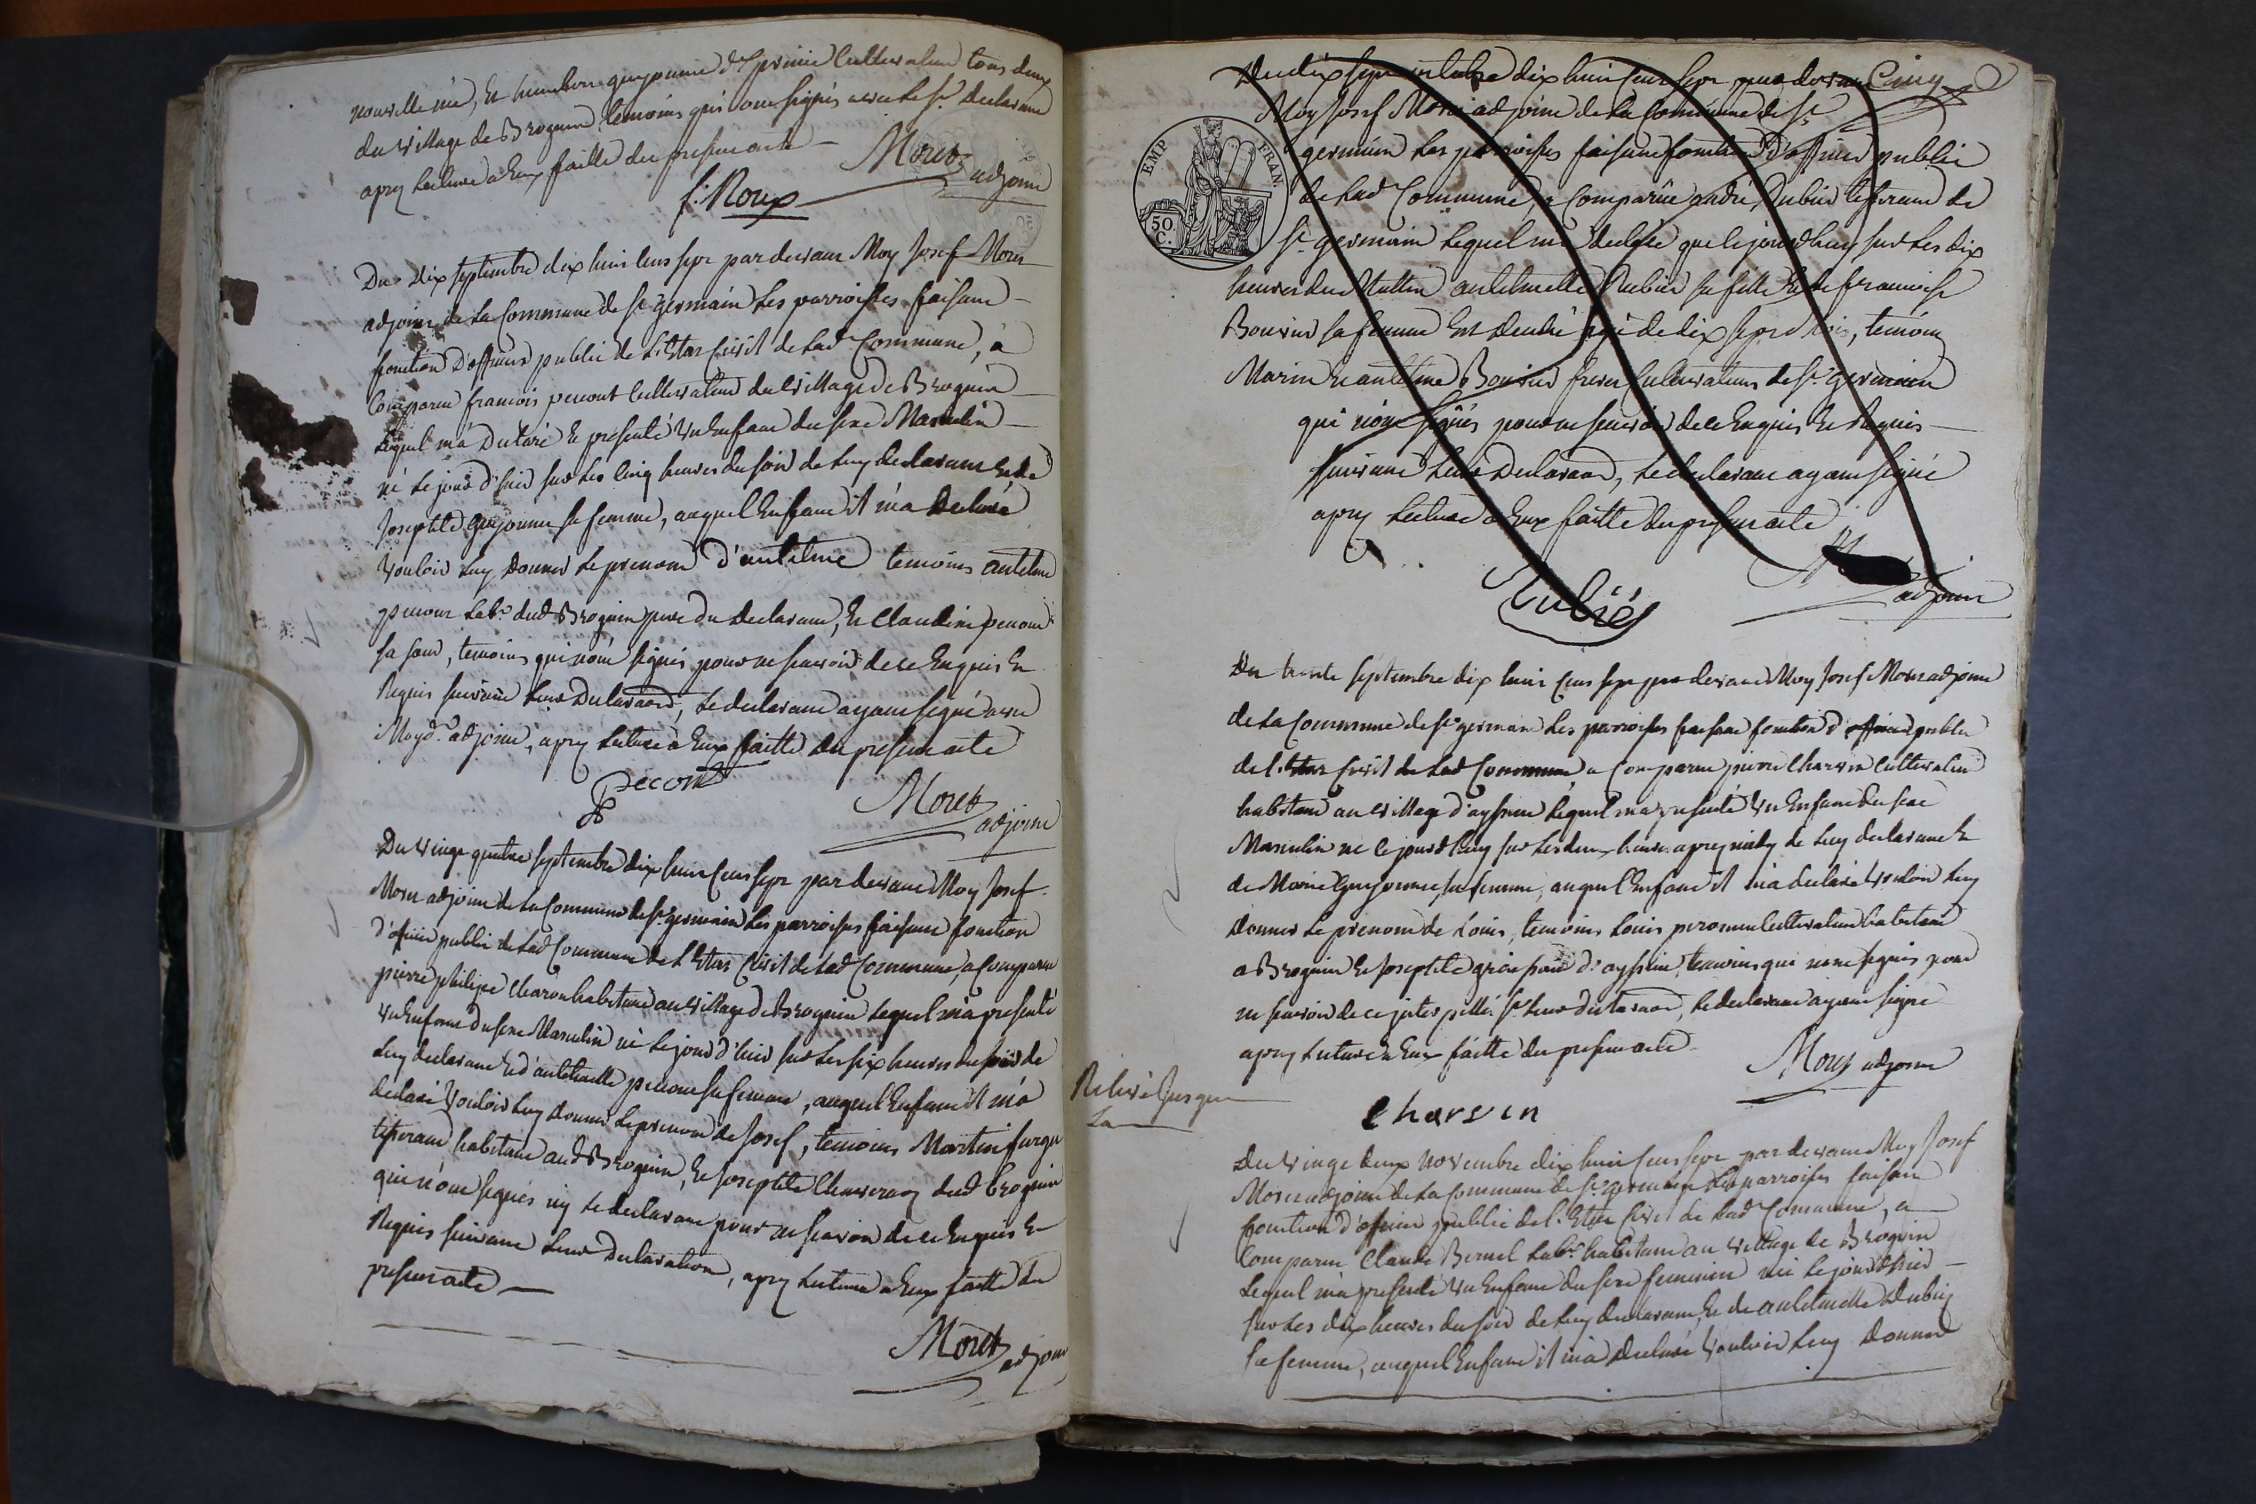 nouvelle née, et humbert guyonnet d'eprini cultivateur tous deux
du village de Brognin temoins qui ont signés avec le Sr. declarant
apry lecture a Eux faitte du present acte
Moret adjoint
f. Roux
Du dix septembre dix huit cens sept par devant Moy Josef Moret
adjoint de la Commune de St germain les parroisses faisant
fonction D'officier public de L'Etat Civil de lad Commune, à
Comparu francois pecout Cultivateur du village de Brognin
lequel m'à Declaré et presenté un Enfant du sexe Masculin
né le jour d'hier sur les cinq heures du soir de Luy declarant et de
Josephte guyonnet sa femme, auquel Enfant il m'a Declaré
vouloir luy donner le prenom d'antelme temoins antelme
pecout labr. dud Brognin pere du Declarant, et Claudine pecout
sa sœur, temoins qui n'ont signés pour ne scavoir de ce Enquis et
Requis suivant leur Declaraon, le declarant ayant signé avec
Moyd. adjoint, apry lecture à Eux faitte du present acte
Pecout
Moret
adjoint
Du vingt quatre septembre dix huit Cens sept par devant Moy Josef
Moret adjoint de la Commune de St germain les parroisses faisant fonction
d'officier public de lad Commune de L'Etat Civil de lad Commune, a Comparu
pierre philipe Charon habitant au village de Brognin lequel m'à presenté
un Enfant du sexe Masculin né le jour d'hier sur les six heures du soir de
luy declarant et d'antelmette pecout sa femme, auquel Enfant il m'à
declaré vouloir luy donner le prenom de Josef, temoins Martin
tisserant habitant aud Brognin, et Josephte dud brognin
qui n'ont signés ny le declarant pour ne scavoir de ce Enquis et
Requis suivant leur Declaration, apry lecture a Eux faitte du
present acte
Moret adjoint
Du dix sept octobre dix huit cens sept par devant Cinq
Moy Josef Moret adjoint de la Commune de St
germain les parroisses faisant fonction D'officier public
de lad Commune, a Comparüe andré Rubier tisserant de
St germain lequel m'a declaré que le jourdhuy sur les dix
heures du Mattin antelmette Rubier sa fille et de francoise
Bouvier sa femme est decedé agé de dix sept Mois, temoins
Marin et antelme Bouvier freres Cultivateurs de St germain
qui n'ont signés pour ne scavoir de ce Enquis et Requis
suivant leur Declaraon, le declarant ayant signé
apry lecture a Eux faitte du present acte
EMP FRAN.
50 C.
Rubier
adjoint
Du trente septembre dix huit cens sept par devant Moy Josef Moret adjoint
de la Commune de St germain les parroisses faisant fonction d'officier public
de l'Etat Civil de lad Commune, a Comparu pierre Charvin Cultivateur
habitant au village d'ayssieu lequel m'a presenté un Enfant du sexe
Masculin né le jourdhuy sur les deux heures apry midy de Luy declarant et
de Marie guyonnet sa femme, auquel Enfant il m'a declaré vouloir luy
donner le prenom de Louis, temoins Louis Cultivateur habitant
a Brognin et Josephte d'ayssieu, temoins qui n'ont signés pour
ne scavoir de ce st leur declaraon, le declarant ayant signé
apry lecture a Eux faitte du present acte
Moret adjoint
Charvin
Relevé Jusque
La
Du vingt deux Novembre dix huit cens sept par devant Moy Josef
Moret adjoint de la Commune de St germain les parroisses faisant
fonction d'officier public de l'Etat Civil de lad Commune, a
Comparu Claude Bernel labr. habitant au village de Brognin
lequel m'à presenté un Enfant du sexe feminin née le jour d'hier
sur les dix heures du soir de luy declarant, et de antelmette Dubuy
sa femme, auquel Enfant il m'a Declaré vouloir luy donner